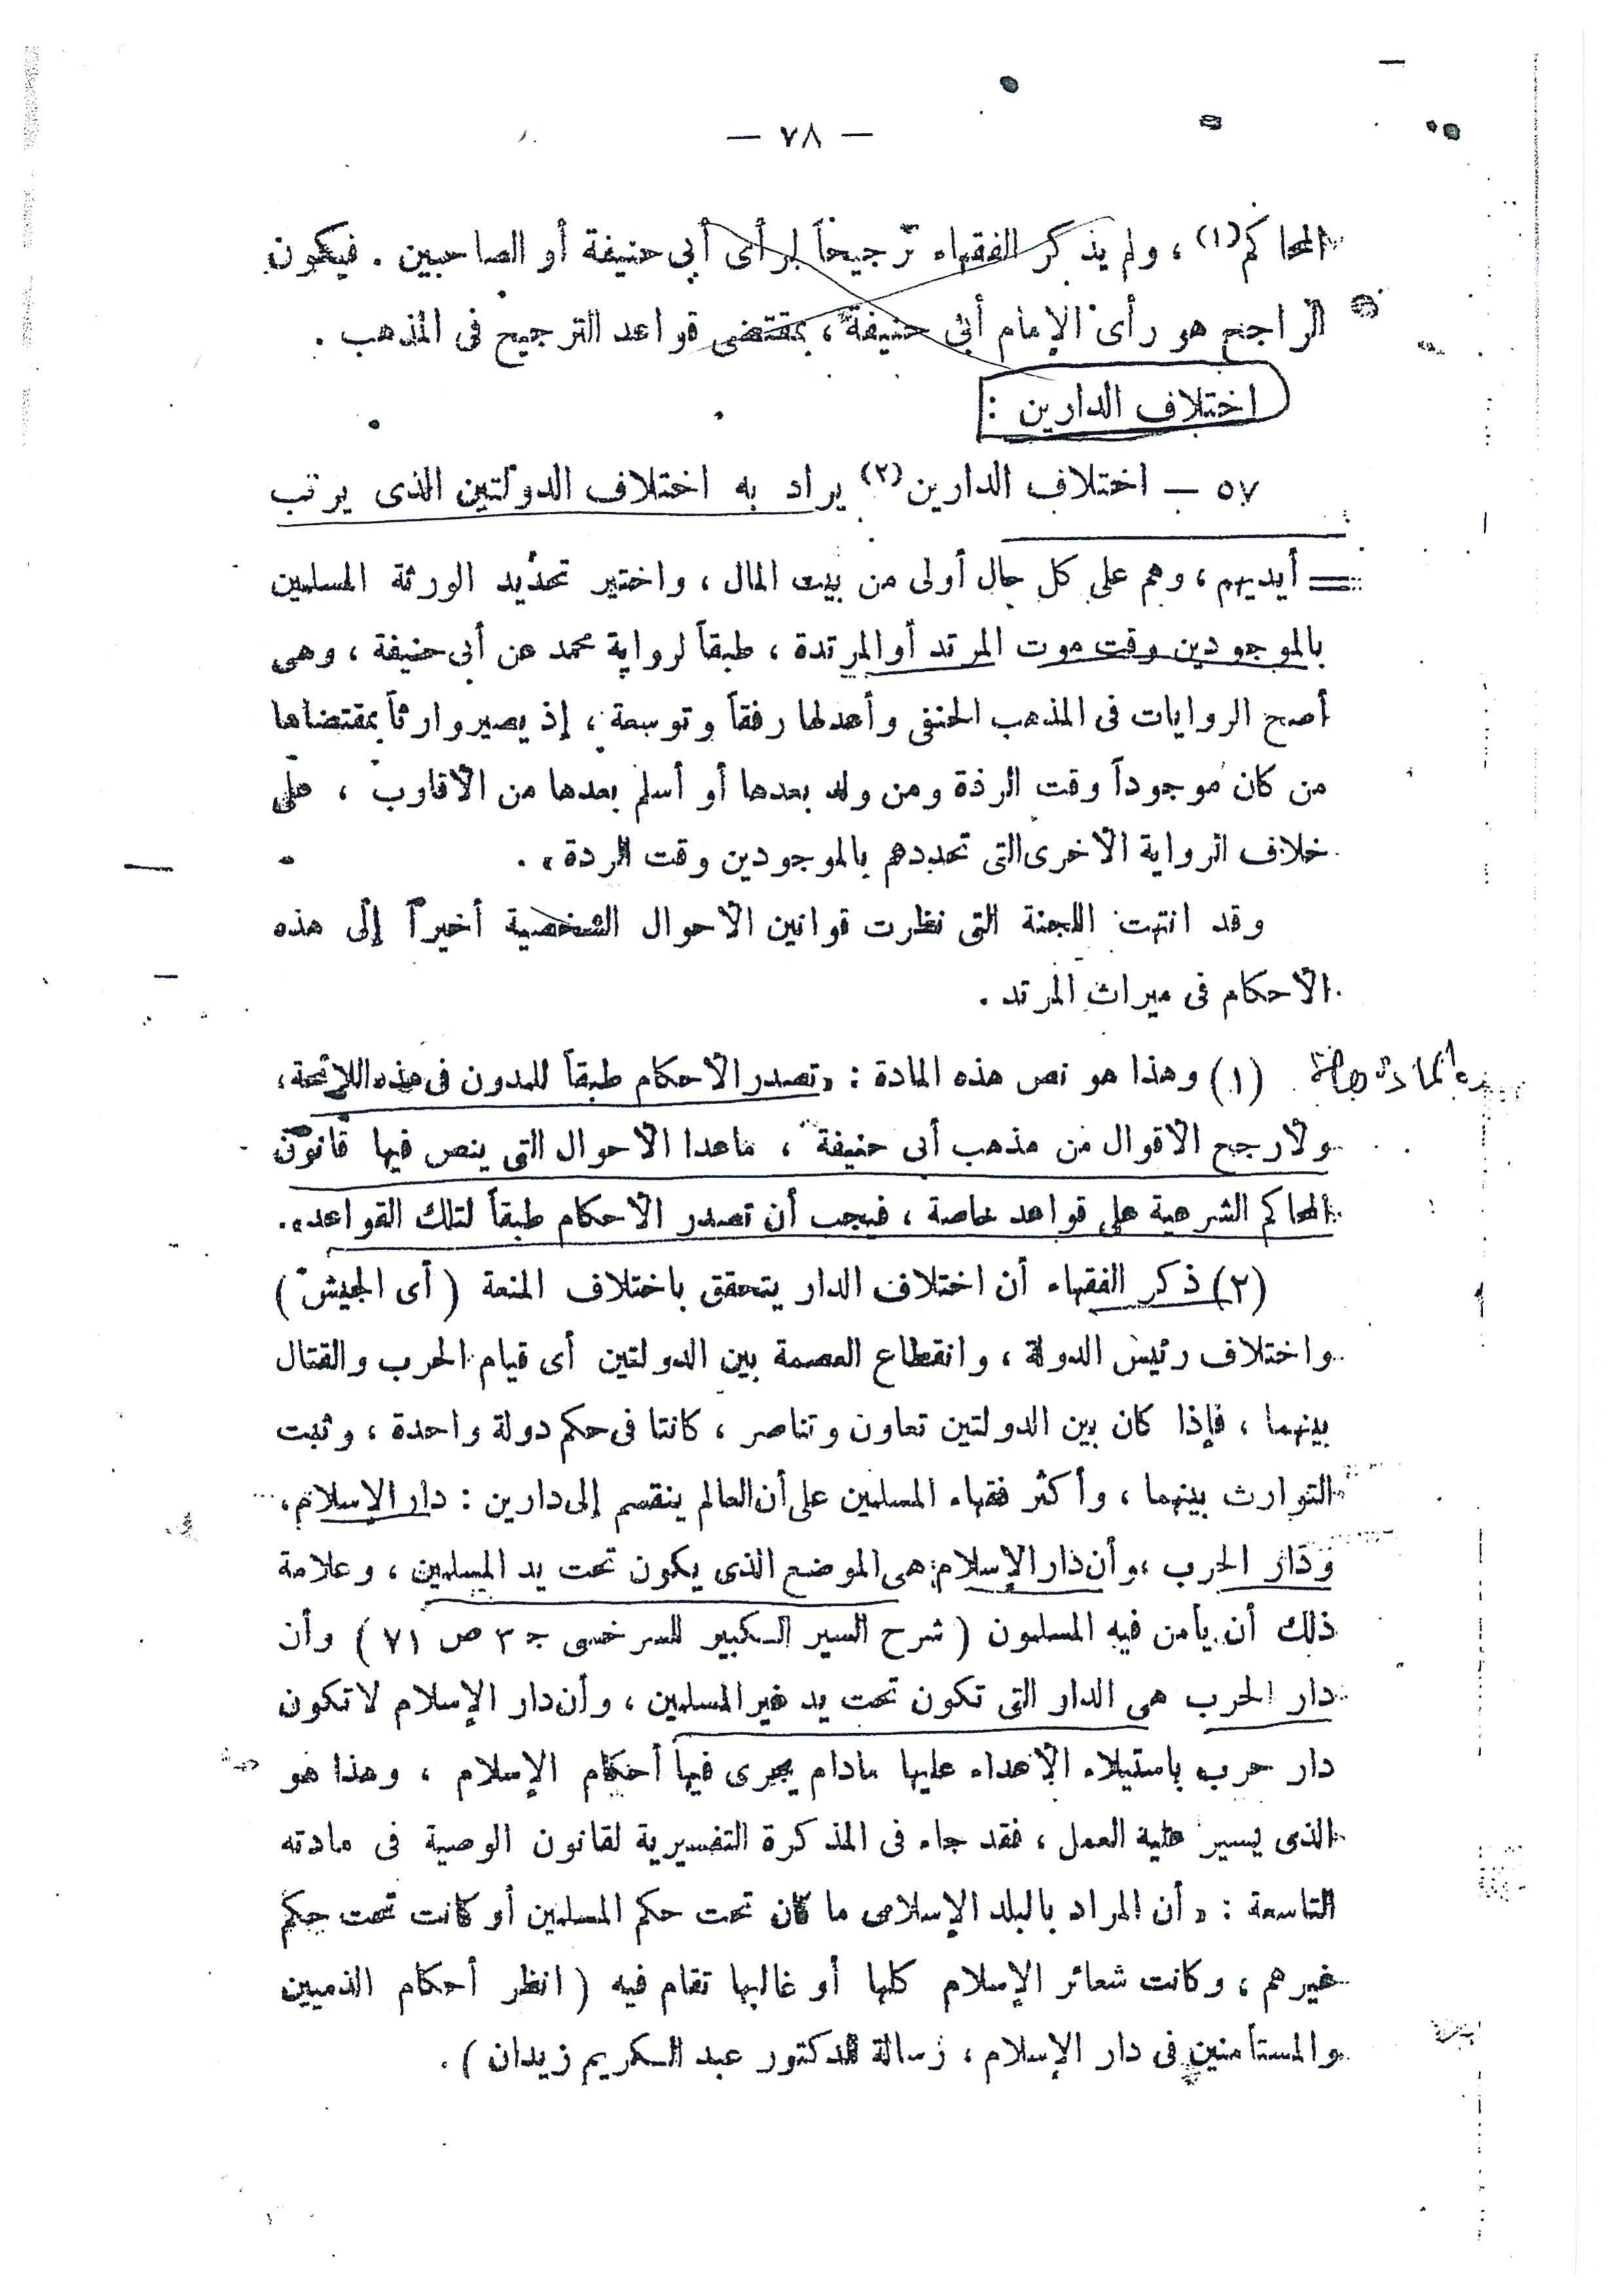 — ٧٨ —
المحاكم(١) ، ولم يذكر الفقهاء ترجيحاً لرأى أبى حنيفة أو الصاحبين . فيكون
الراجح هو رأى الإمام أبى حنيفة ، بمقتضى قواعد الترجيح فى المذهب .
اختلاف الدارين :
٥٧ — اختلاف الدارين(٢) يراد به اختلاف الدولتين الذى يرتب
= أيديهم ، وهم على كل حال أولى من بيت المال ، واختير تحديد الورثة المسلمين
بالموجودين وقت موت المرتد أو المرتدة ، طبقاً لرواية محمد عن أبى حنيفة ، وهى
أصح الروايات فى المذهب الحنفى وأعدلها رفقاً وتوسعة ، إذ يصير وارثاً بمقتضاها
من كان موجوداً وقت الردة ومن ولد بعدها أو أسلم بعدها من الأقارب ، على
خلاف الرواية الأخرى التى تحددهم بالموجودين وقت الردة » .
وقد انتهت اللجنة التى نظرت قوانين الأحوال الشخصية أخيراً إلى هذه
الأحكام فى ميراث المرتد .
(١) وهذا هو نص هذه المادة : « تصدر الأحكام طبقاً للمدون فى هذه اللائحة ،
ولأرجح الأقوال من مذهب أبى حنيفة ، ماعدا الأحوال التى ينص فيها قانون
المحاكم الشرعية على قواعد خاصة ، فيجب أن تصدر الأحكام طبقاً لتلك القواعد » .
(٢) ذكر الفقهاء أن اختلاف الدار يتحقق باختلاف المنعة ( أى الجيش )
واختلاف رئيس الدولة ، وانقطاع العصمة بين الدولتين أى قيام الحرب والقتال
بينهما ، فإذا كان بين الدولتين تعاون وتناصر ، كانتا فى حكم دولة واحدة ، وثبت
التوارث بينهما ، وأكثر فقهاء المسلمين على أن العالم ينقسم إلى دارين : دار الإسلام ،
ودار الحرب ، وأن دار الإسلام هى الموضع الذى يكون تحت يد المسلمين ، وعلامة
ذلك أن يأمن فيه المسلمون ( شرح السير الكبير للسرخسى ج ٣ ص ٧١ ) وأن
دار الحرب هى الدار التى تكون تحت يد غير المسلمين ، وأن دار الإسلام لا تكون
دار حرب باستيلاء الأعداء عليها مادام يجرى فيها أحكام الإسلام ، وهذا هو
الذى يسير عليه العمل ، فقد جاء فى المذكرة التفسيرية لقانون الوصية فى مادته
التاسعة : « أن المراد بالبلد الإسلامى ما كان تحت حكم المسلمين أو كانت تحت حكم
غيرهم ، وكانت شعائر الإسلام كلها أو غالبها تقام فيه ( انظر أحكام الذميين
والمستأمنين فى دار الإسلام ، رسالة للدكتور عبد الكريم زيدان ) .